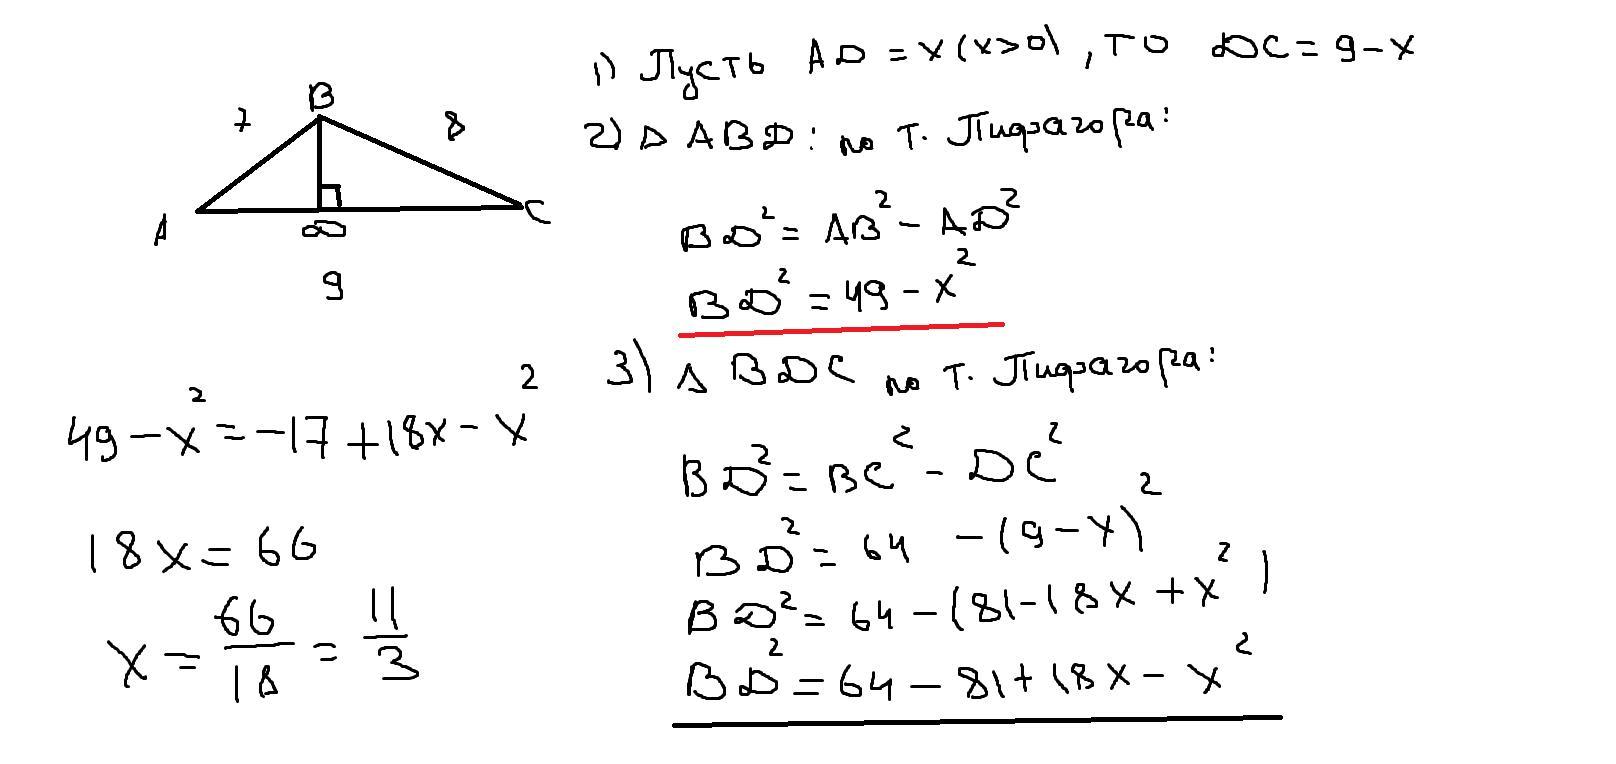 B
7
8
A
D
C
9
1) Пусть AD = x (x>0), то DC = 9 - x
2) Δ ABD: по т. Пифагора:
BD² = AB² - AD²
BD² = 49 - x²
3) Δ BDC по т. Пифагора:
BD² = BC² - DC²
BD² = 64 - (9 - x)²
BD² = 64 - (81 - 18x + x²)
BD² = 64 - 81 + 18x - x²
49 - x² = -17 + 18x - x²
18x = 66
x = 66/18 = 11/3